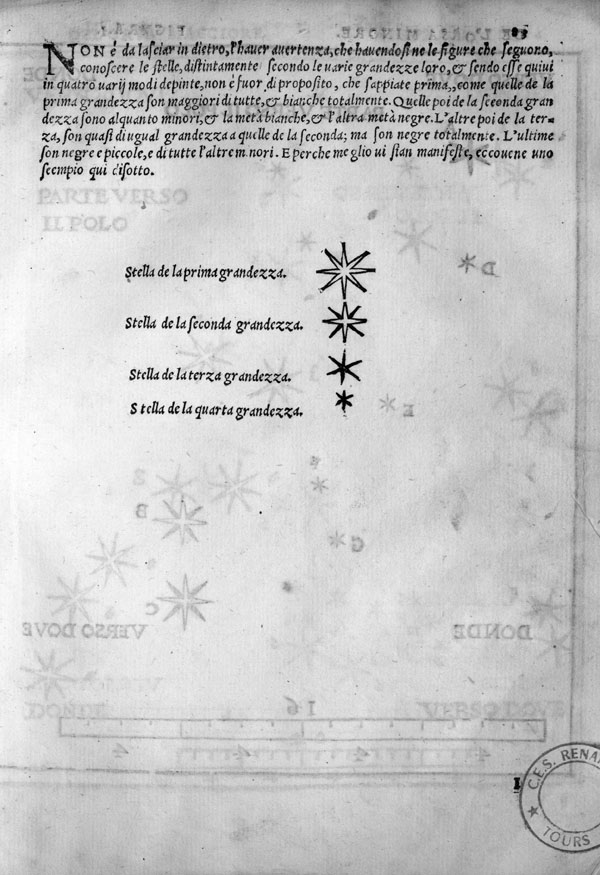 NON è da lasciar in dietro, l'haver avertenza, che havendosi ne le figure che seguono,
conoscere le stelle, distintamente secondo le varie grandezze loro, & sendo esse quivi
in quatro varij modi depinte, non è fuor di proposito, che sappiate prima,, come quelle de la
prima grandezza son maggiori di tutte, & bianche totalmente. Quelle poi de la seconda gran
dezza sono alquanto minori, & la metà bianche, & l'altra metà negre. L'altre poi de la ter-
za, son quasi di ugual grandezza a quelle de la seconda; ma son negre totalmente. L'ultime
son negre e piccole, e di tutte l'altre minori. E perche meglio vi sian manifeste, eccovene uno
seempio qui disotto.
PARTE VERSO
IL POLO
D
Stella de la prima grandezza.
Stella de la seconda grandezza.
Stella de la terza grandezza.
Stella de la quarta grandezza.
E
F
B
G
C
VERSO DOVE
DONDE
DONDE
VERSO DOVE
16
4 4 4 4
I
C.E.S. RENAI
TOURS